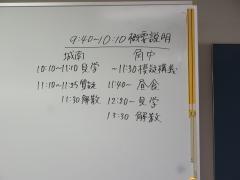 9:40~10:10 概要説明
城南 府中
10:10~11:10 見学 ~11:30 模擬講義
11:10~11:25 質疑 11:40~ 昼食
11:30 解散 12:20~ 見学
13:30 解散